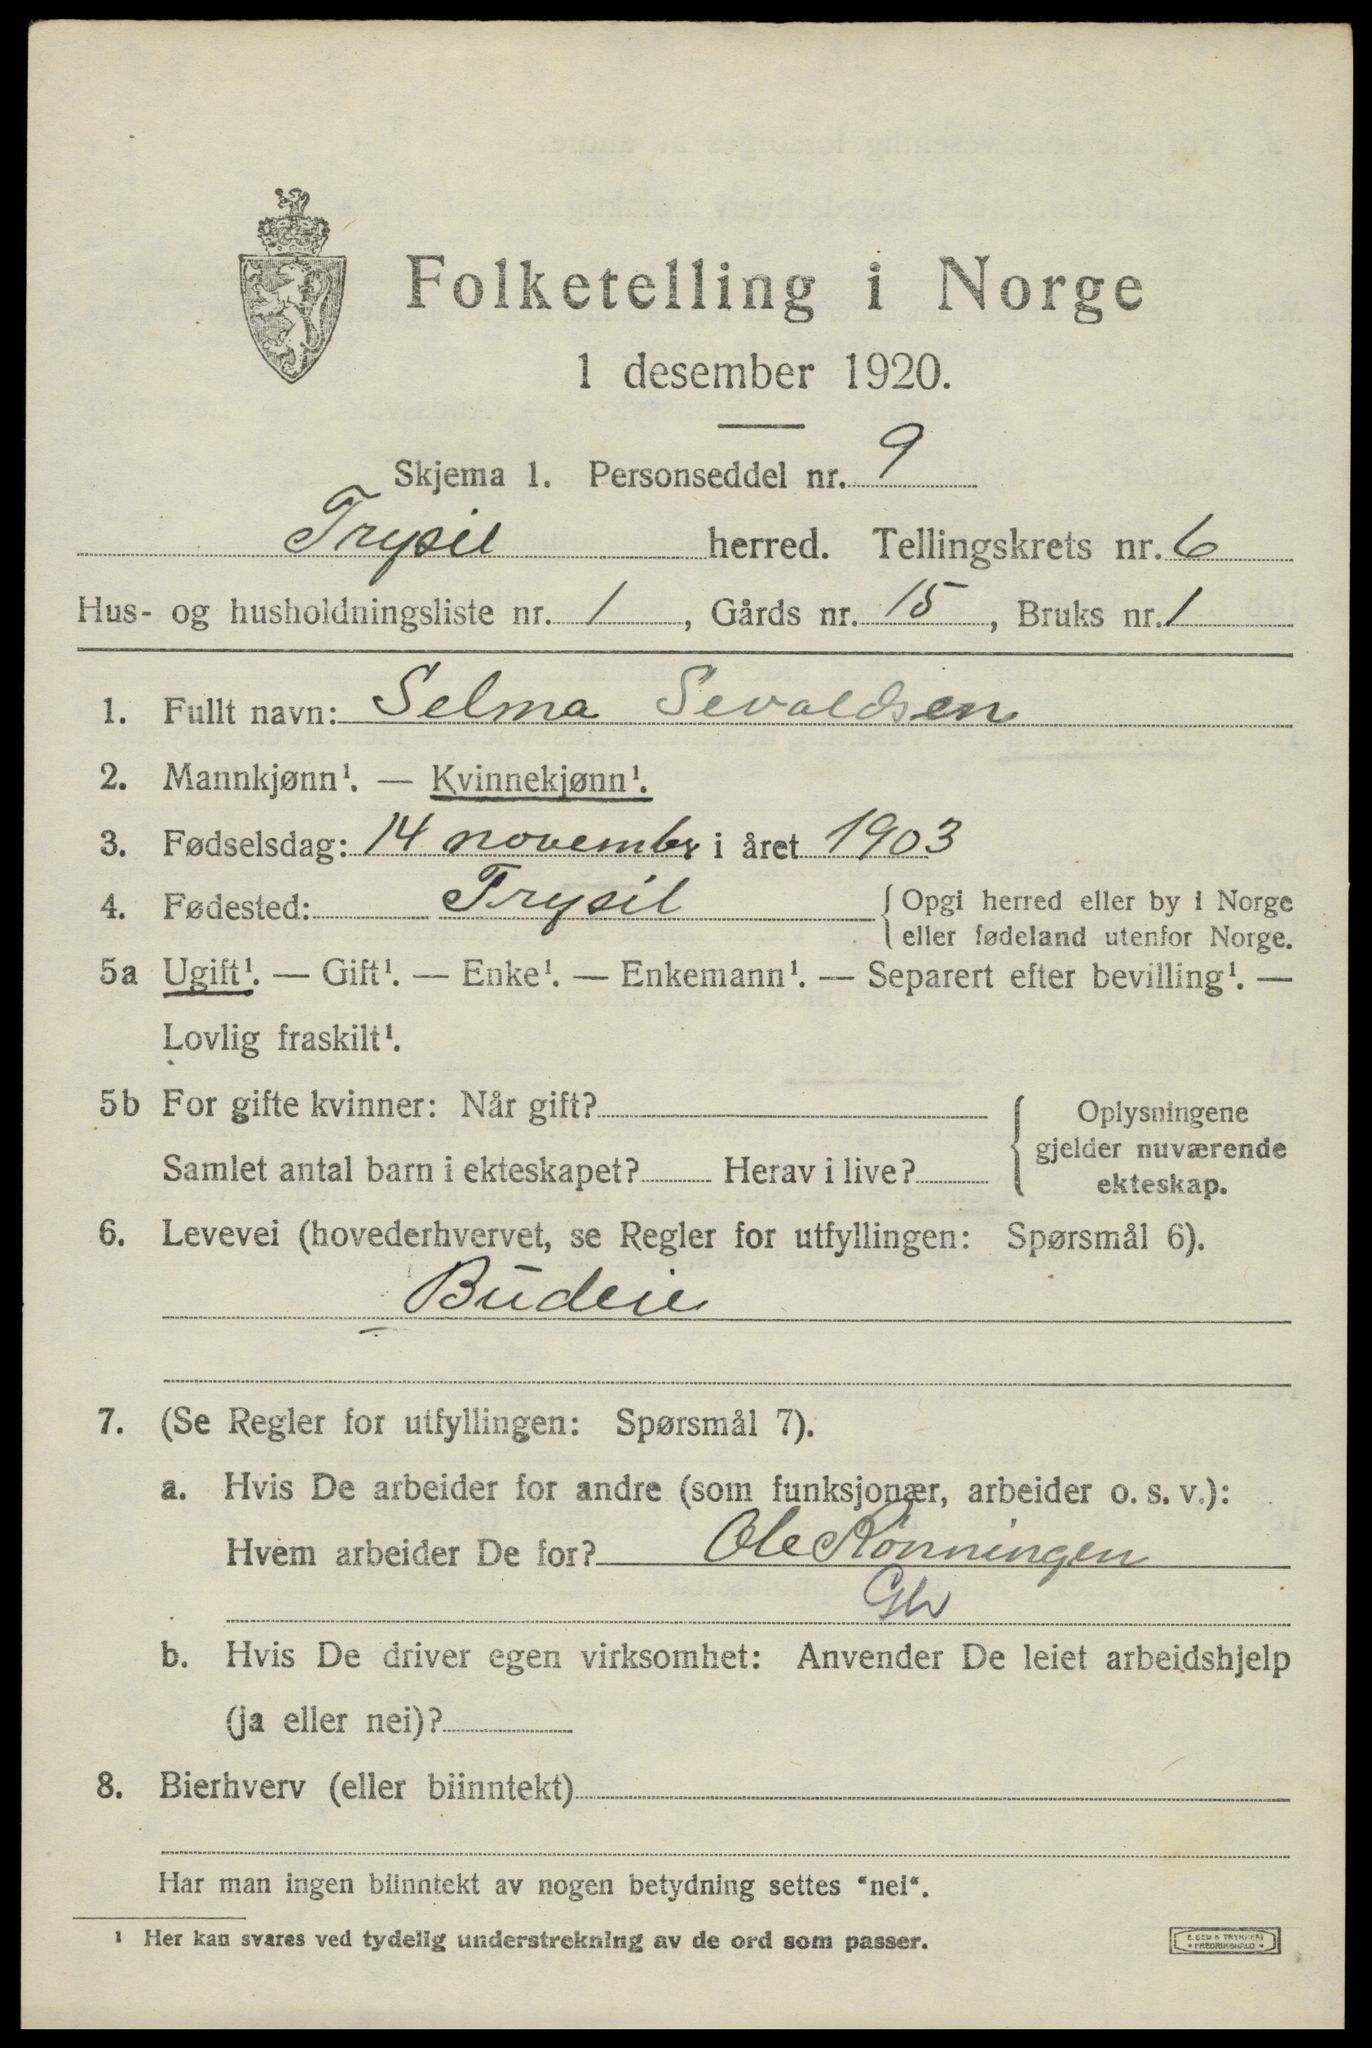 Folketelling i Norge
1 desember 1920.
Skjema 1. Personseddel nr. 9
Trysil herred. Tellingskrets nr. 6
Hus- og husholdningsliste nr. 1, Gårds nr. 15, Bruks nr. 1
1. Fullt navn: Selma Sevaldsen
2. Mannkjønn¹. — Kvinnekjønn¹.
3. Fødselsdag: 14 novembr i året 1903
4. Fødested: Trysil { Opgi herred eller by i Norge
eller fødeland utenfor Norge.
5a Ugift¹. — Gift¹. — Enke¹. — Enkemann¹. — Separert efter bevilling¹. —
Lovlig fraskilt¹.
5b For gifte kvinner: Når gift?
Samlet antal barn i ekteskapet? Herav i live?
{ Oplysningene
gjelder nuværende
ekteskap.
6. Levevei (hovederhvervet, se Regler for utfyllingen: Spørsmål 6).
Budeie
7. (Se Regler for utfyllingen: Spørsmål 7).
a. Hvis De arbeider for andre (som funksjonær, arbeider o. s. v.):
Hvem arbeider De for? Ole Rønningen
b. Hvis De driver egen virksomhet: Anvender De leiet arbeidshjelp
(ja eller nei)?
8. Bierhverv (eller biinntekt)
Har man ingen biinntekt av nogen betydning settes "nei".
¹ Her kan svares ved tydelig understrekning av de ord som passer.